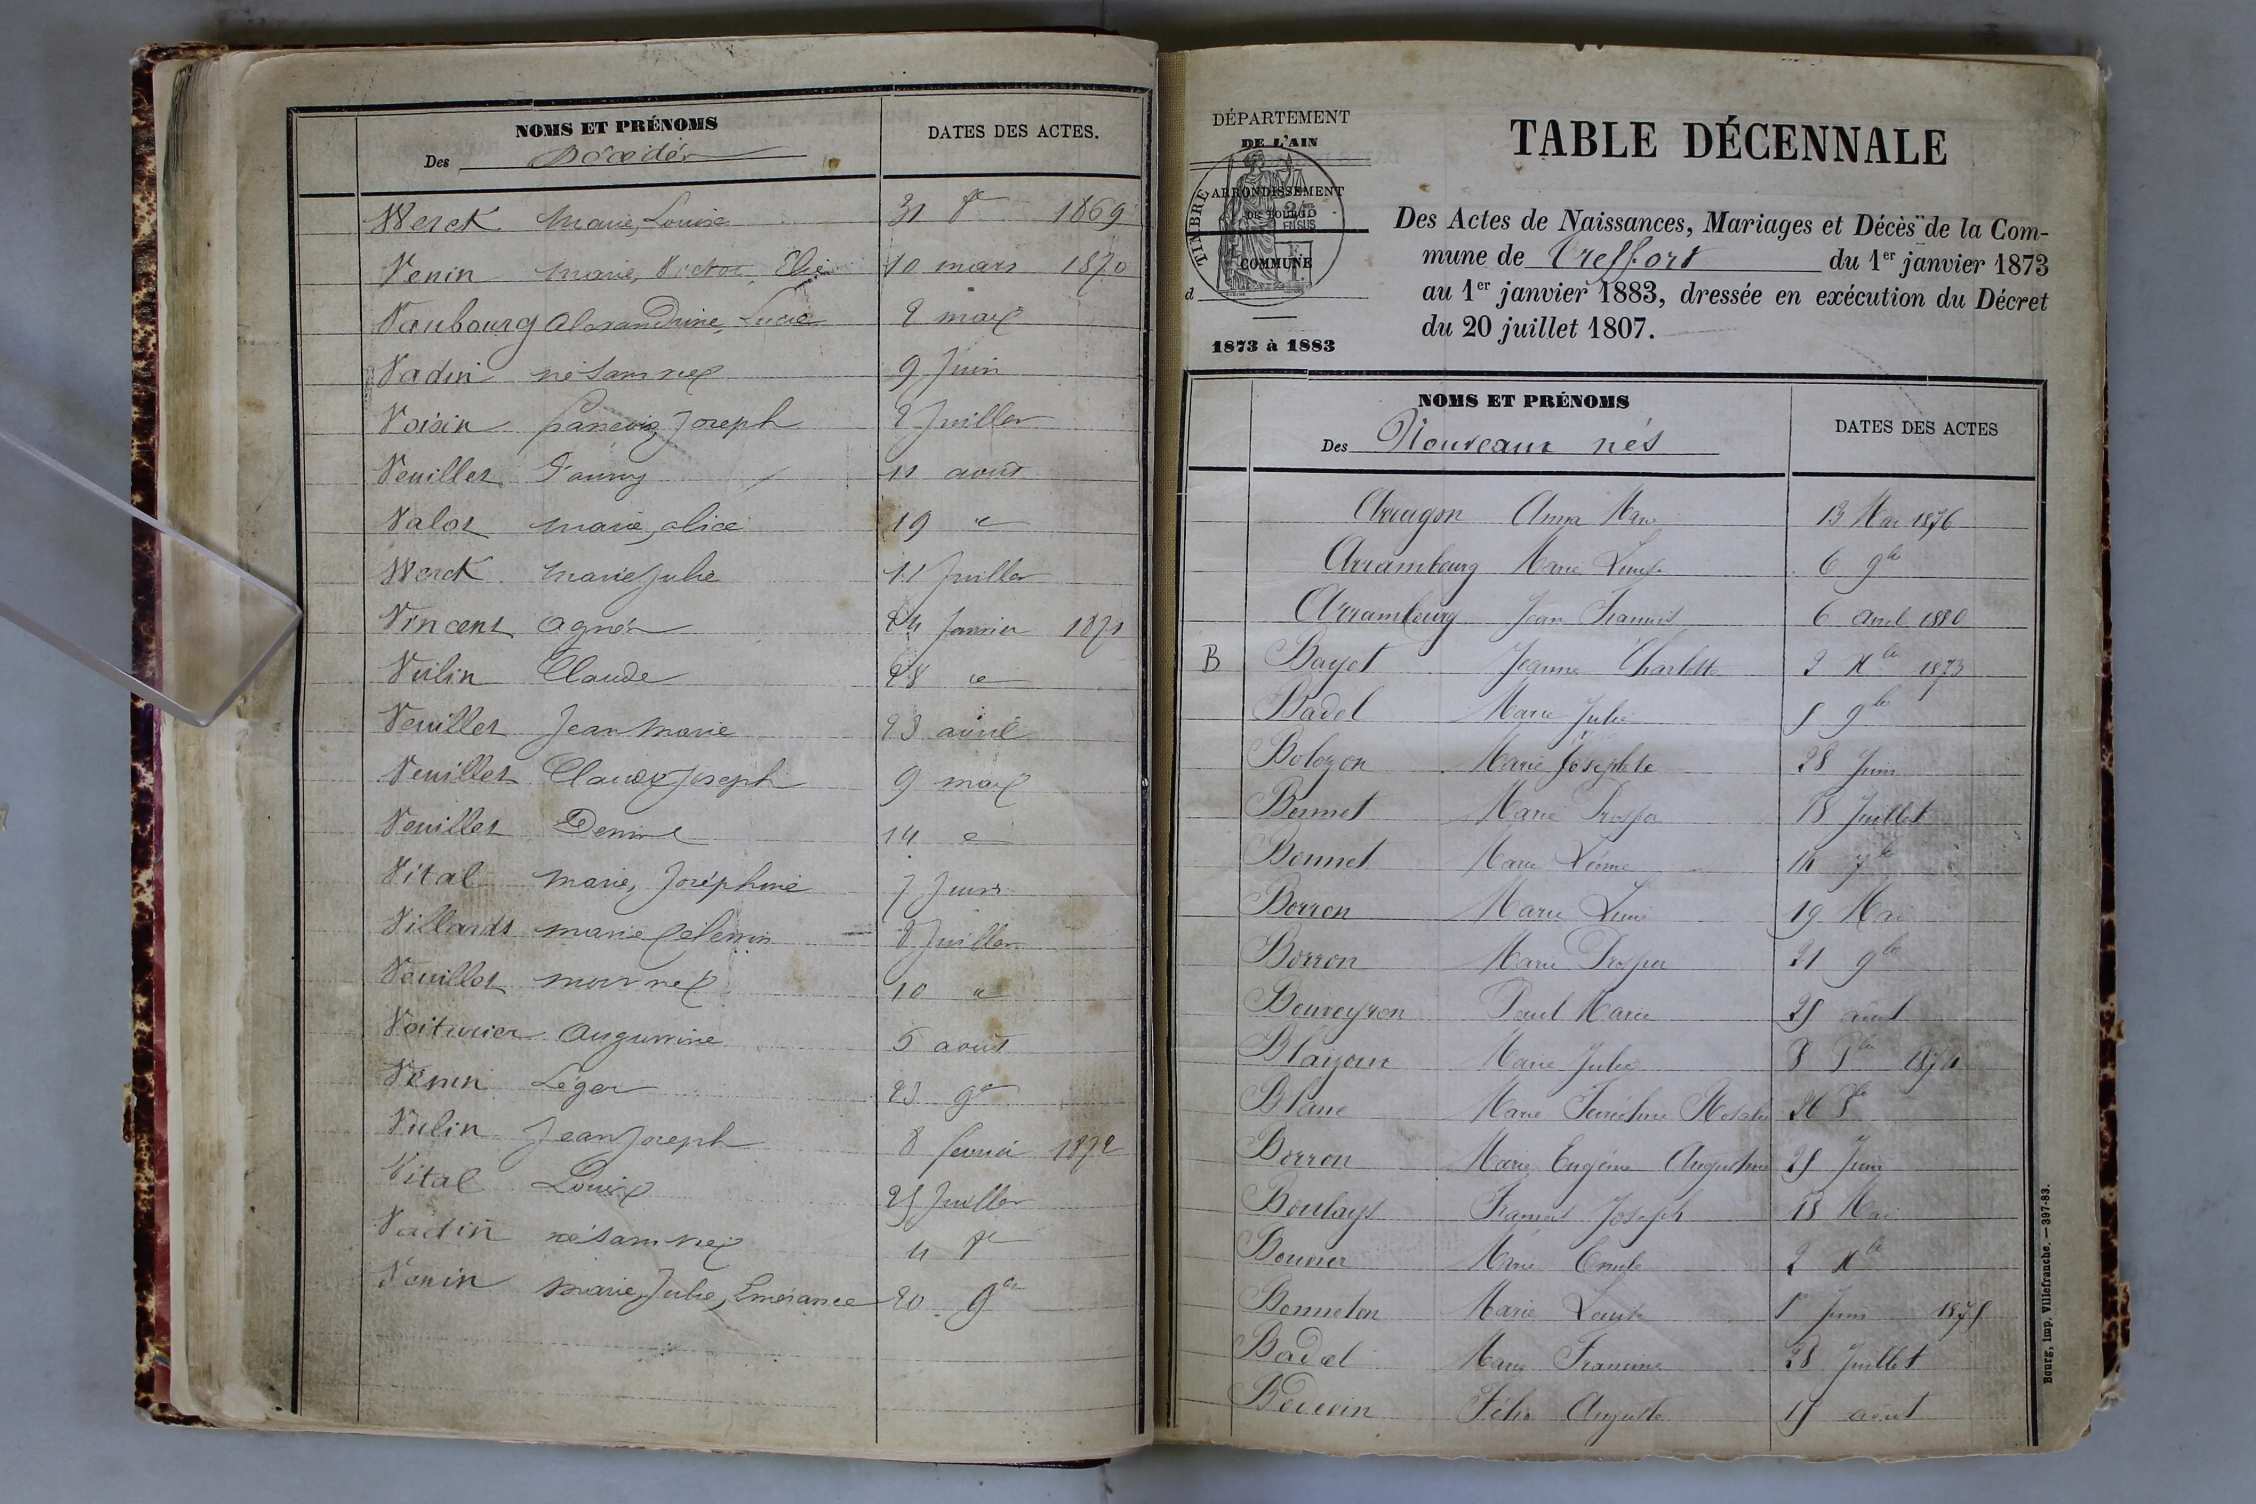 NOMS ET PRÉNOMS
DATES DES ACTES.
Des Décédés
Werck Marie, Louise 31 8e 1869
Venin Marie, Victor, Elie 10 mars 1870
Vaubourg Alexandrine, Lucie 2 mai
Vadin né sans vie 9 Juin
Voisin François Joseph 2 Juillet
Veuillet Fanny 11 août
Valot Marie, alice 19 "
Werck Marie Julie 11 Juillet
Vincent Agnès 24 Janvier 1871
Vulin Claude 28 "
Veuillet Jean Marie 23 avril
Veuillet Claude Joseph 9 mai
Veuillet Denise 14 "
Vital Marie, Joséphine 7 Juin
Villards Marie 8 Juillet
Veuillet mort né 10 "
Voiturier Augustine 5 août
Venin Léger 23 9e
Vulin Jean Joseph 8 février 1872
Vital Louise 25 Juillet
Vadin né sans vie 4 8e
Venin Marie, Julie, Emérance 20 9bre
DÉPARTEMENT
DE L'AIN
ARRONDISSEMENT
DE BOURG
COMMUNE
d
TIMBRE
1873 à 1883
TABLE DÉCENNALE
Des Actes de Naissances, Mariages et Décès de la Com-
mune de Treffort du 1er janvier 1873
au 1er janvier 1883, dressée en exécution du Décret
du 20 juillet 1807.
NOMS ET PRÉNOMS
DATES DES ACTES
Des Nouveaux nés
Arragon Anna Marie 13 Mai 1876
Arrambourg Marie Louise 6 9bre
Arrambourg Jean François 6 avril 1880
B Bayet Jeanne Charlotte 2 Xbre 1873
Badel Marie Julie 5 9bre
Bolozon Marie Josephte 28 Juin
Bonnet Marie Prosper 18 Juillet
Bonnet Marie 7bre
Borron Marie 19 Mai
Borron Marie Prosper 21 9bre
Bouveyron Paul Marie 25 août
Marie Julie 8 8bre 1874
Blanc Marie 26 8bre
Borron Marie Eugénie Augustine 25 Juin
Boulays François Joseph 18 Mai
Marie Emile 2 Xbre
Bonneton Marie Louise 1er Juin 1875
Badel Marie Francine 28 Juillet
Félix Auguste 15 août
Bourg, Imp. Villefranche. — 397-83.